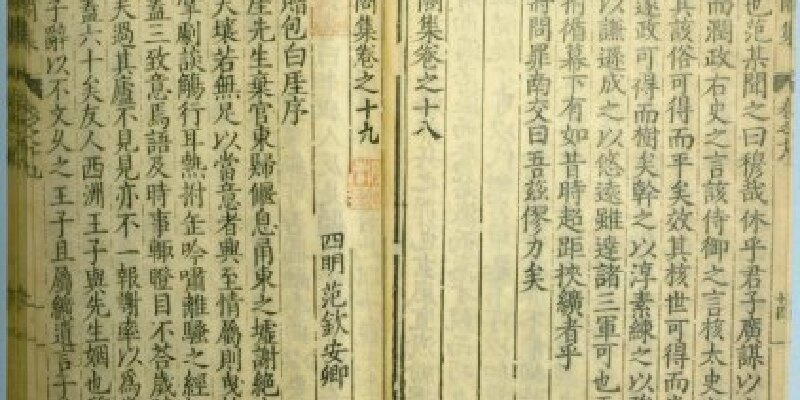 也范某聞之曰穆哉休乎君子廣謀以
而潤政右史之言該侍御之言核太史
其該俗可得而平矣效其核世可得而
遂政可得而樹矣幹之以淳素練之以
以謙遜成之以悠遠雖達諸三軍可也
術循幕下有如昔時超距挾纊者乎
將問罪南交曰吾茲僇力矣
閣集卷之十八
閣集卷之十九
四明范欽安卿
贈包白厓序
厓先生棄官東歸偃息甬東之墟謝絕
天壤若無足以當意者興至情屬則曳
掌劇談觴行耳熱拊缶吟嘯離騷之經
蓋三致意焉語及時事輒瞪目不荅歲
夫過其廬不見見亦不一報謝率以為
蓋六十矣友人西洲王子與先生姻也
子辭以不文久之王子且屬纊遺言于